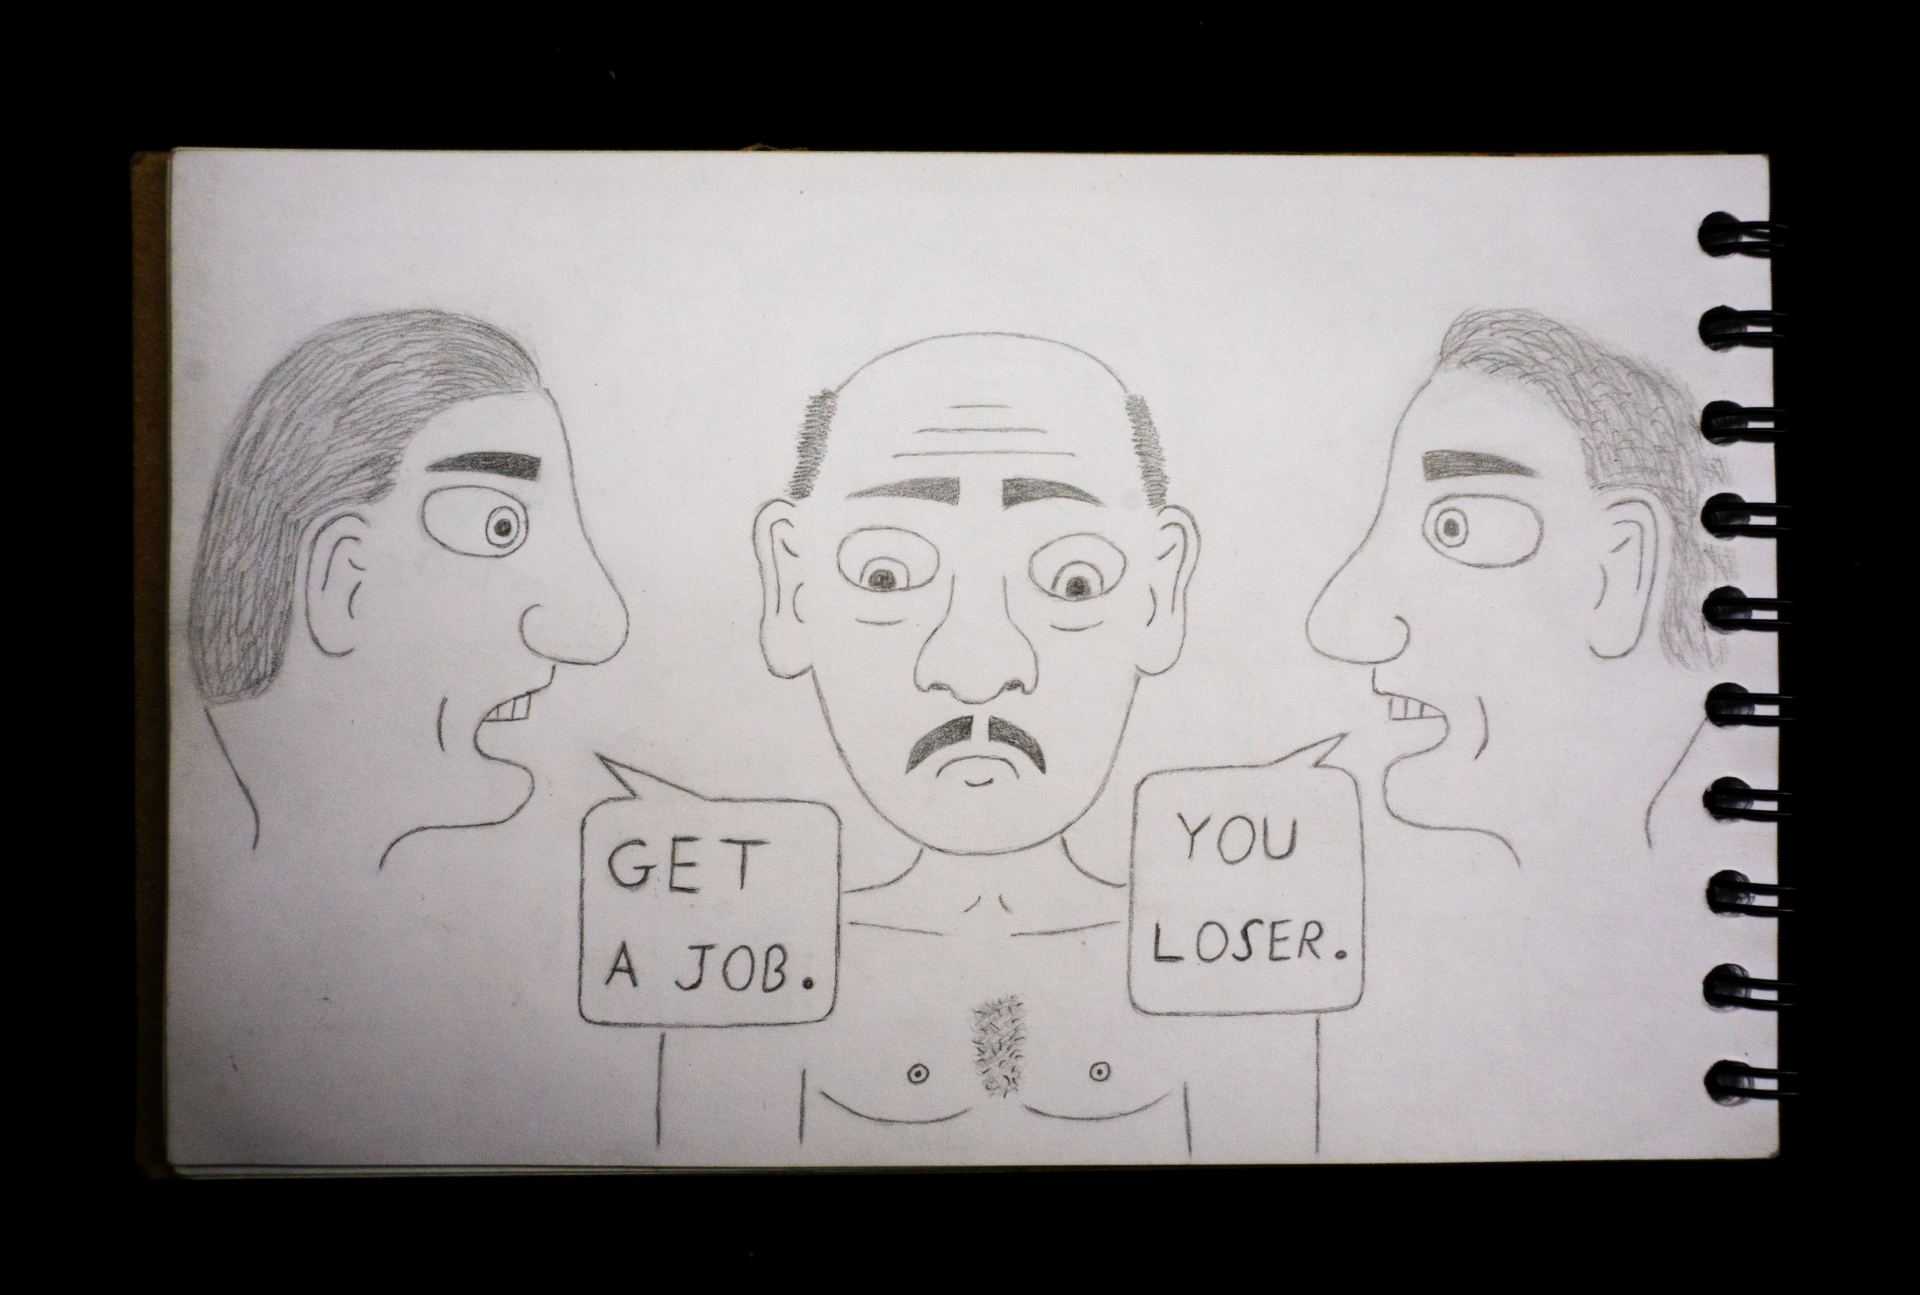 GET
A JOB.
YOU
LOSER.